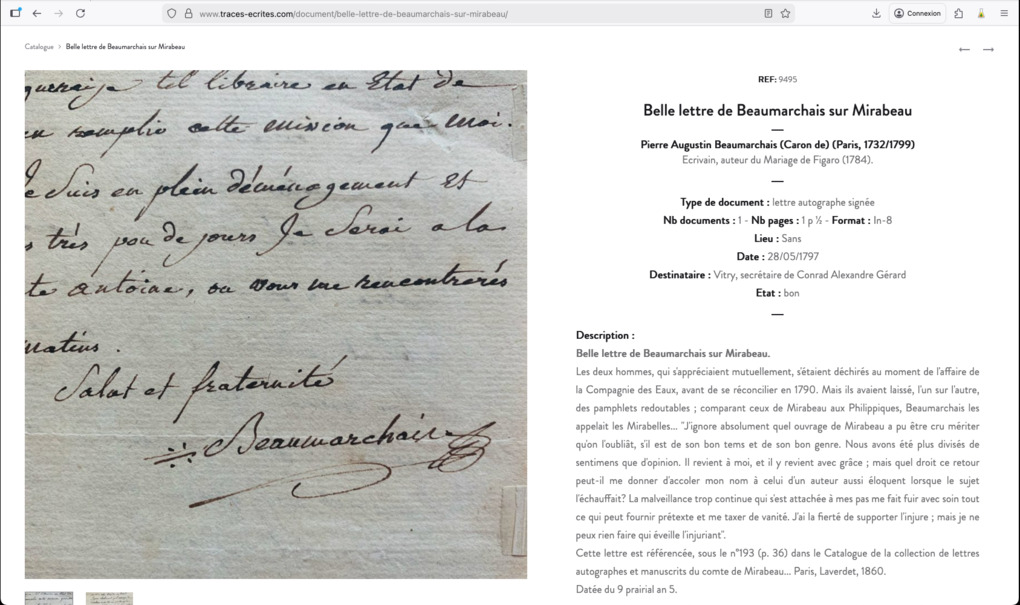 www.traces-ecrites.com/document/belle-lettre-de-beaumarchais-sur-mirabeau/
Connexion
Catalogue > Belle lettre de Beaumarchais sur Mirabeau
tel libraire en Etat de
remplir cette mission que moi.
Je Suis en plein déménagement Et
très peu de jours Je Serai a la
antoine, ou vous me rencontrerés
matins.
Salut et fraternité
Beaumarchais
REF: 9495
Belle lettre de Beaumarchais sur Mirabeau
Pierre Augustin Beaumarchais (Caron de) (Paris, 1732/1799)
Ecrivain, auteur du Mariage de Figaro (1784).
Type de document : lettre autographe signée
Nb documents : 1 - Nb pages : 1 p ½ - Format : In-8
Lieu : Sans
Date : 28/05/1797
Destinataire : Vitry, secrétaire de Conrad Alexandre Gérard
Etat : bon
Description :
Belle lettre de Beaumarchais sur Mirabeau.
Les deux hommes, qui s'appréciaient mutuellement, s'étaient déchirés au moment de l'affaire de
la Compagnie des Eaux, avant de se réconcilier en 1790. Mais ils avaient laissé, l'un sur l'autre,
des pamphlets redoutables ; comparant ceux de Mirabeau aux Philippiques, Beaumarchais les
appelait les Mirabelles... "J'ignore absolument quel ouvrage de Mirabeau a pu être cru mériter
qu'on l'oubliât, s'il est de son bon tems et de son bon genre. Nous avons été plus divisés de
sentimens que d'opinion. Il revient à moi, et il y revient avec grâce ; mais quel droit ce retour
peut-il me donner d'accoler mon nom à celui d'un auteur aussi éloquent lorsque le sujet
l'échauffait? La malveillance trop continue qui s'est attachée à mes pas me fait fuir avec soin tout
ce qui peut fournir prétexte et me taxer de vanité. J'ai la fierté de supporter l'injure ; mais je ne
peux rien faire qui éveille l'injuriant".
Cette lettre est référencée, sous le n°193 (p. 36) dans le Catalogue de la collection de lettres
autographes et manuscrits du comte de Mirabeau... Paris, Laverdet, 1860.
Datée du 9 prairial an 5.